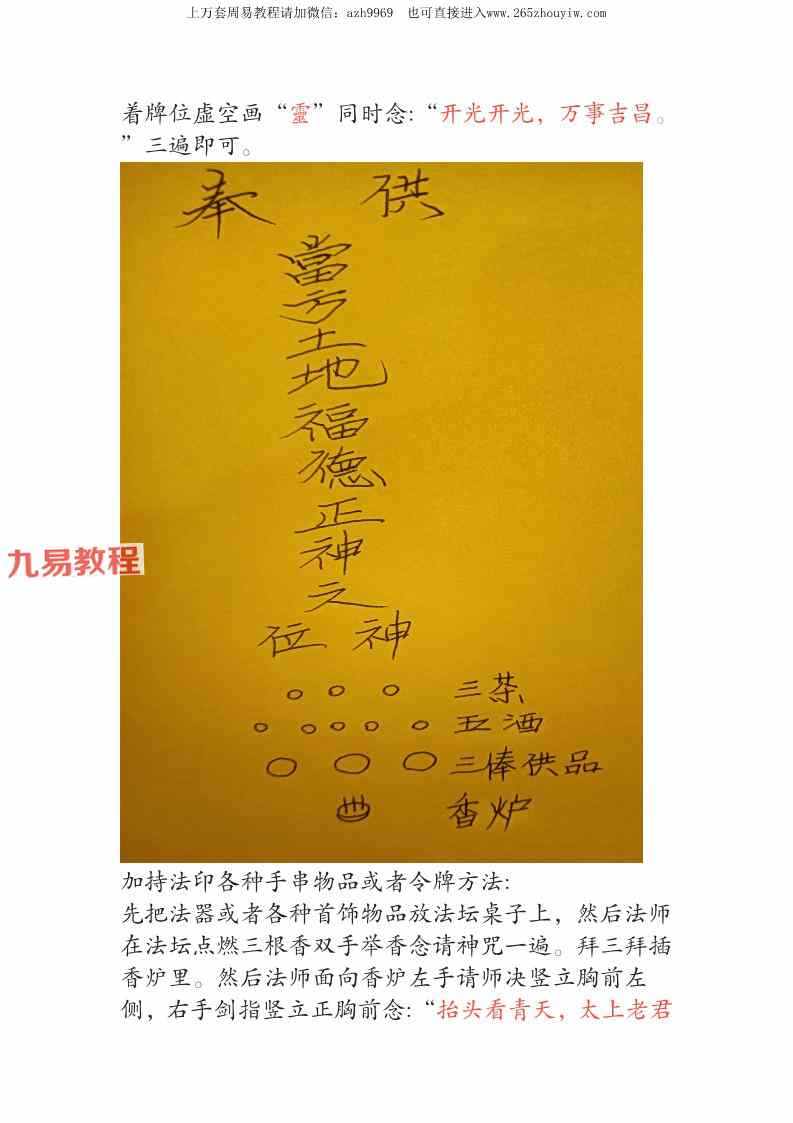 上万套周易教程请加微信：azh9969 也可直接进入www.265zhouyiw.com
着牌位虚空画“靈”同时念:“开光开光，万事吉昌。
”三遍即可。
奉 供
當方土地福德正神之
位 神
三茶
五酒
三俸供品
香炉
九易教程
加持法印各种手串物品或者令牌方法:
先把法器或者各种首饰物品放法坛桌子上，然后法师
在法坛点燃三根香双手举香念请神咒一遍。拜三拜插
香炉里。然后法师面向香炉左手请师决竖立胸前左
侧，右手剑指竖立正胸前念:“抬头看青天，太上老君